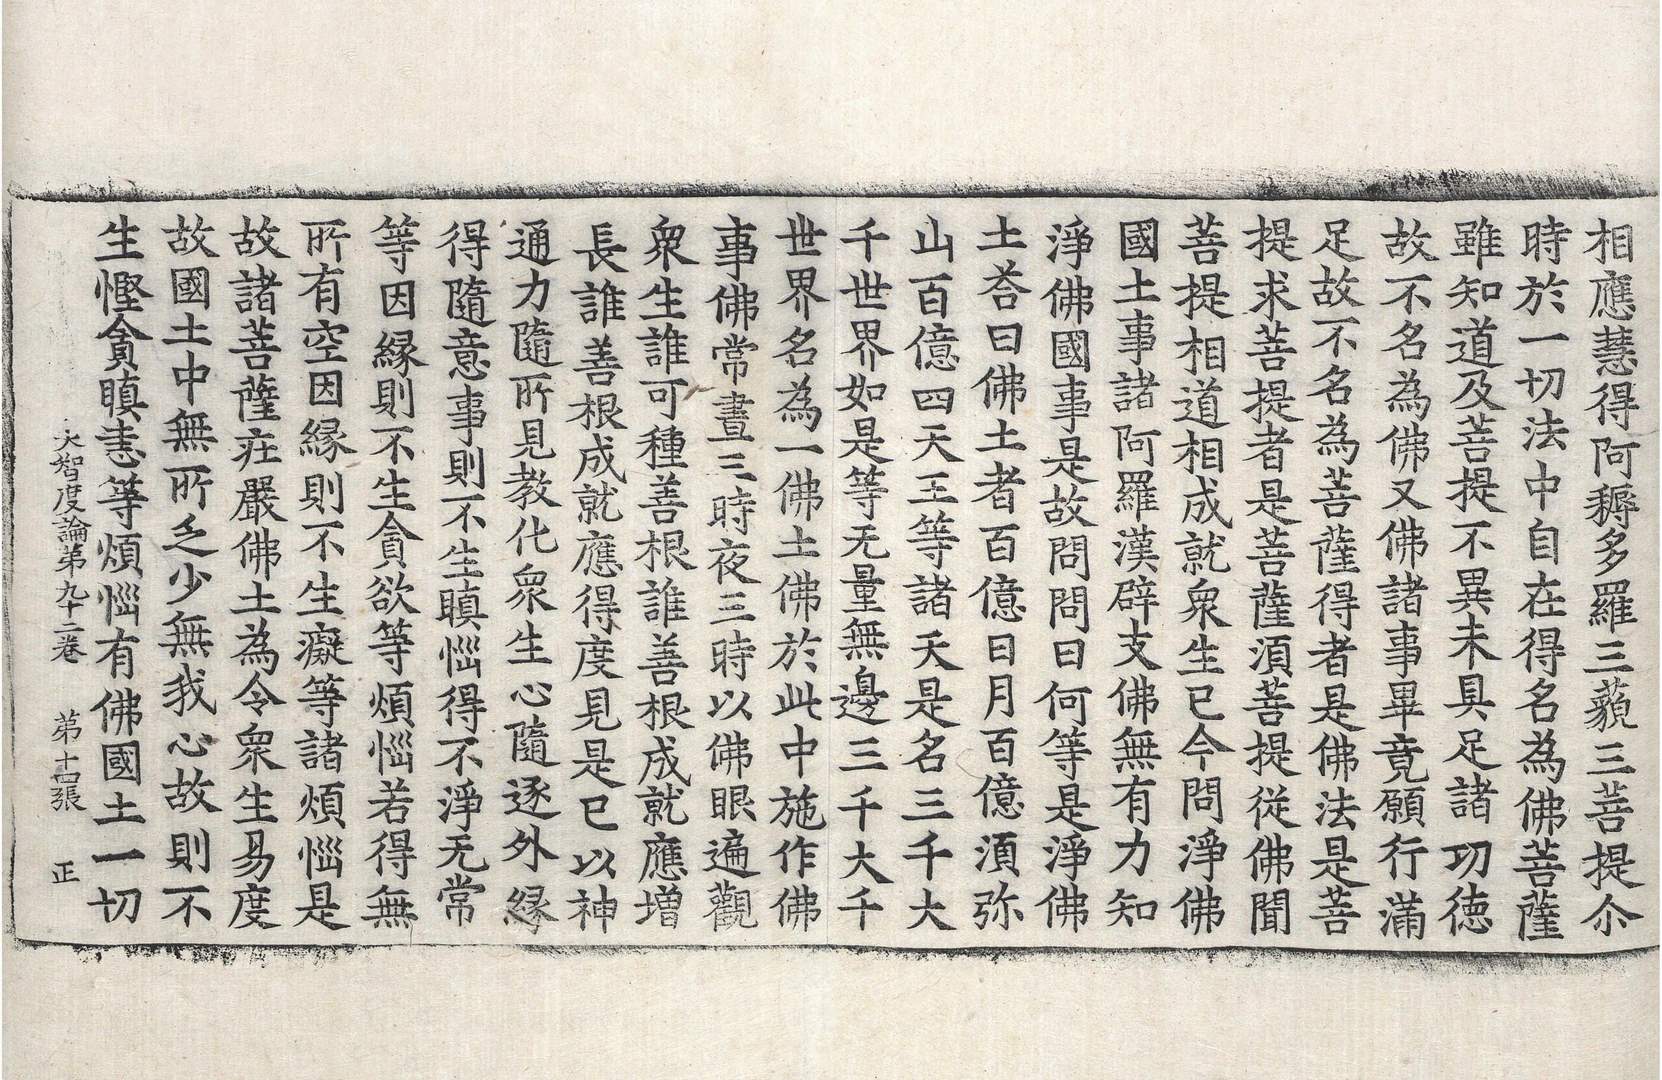 相應慧得阿耨多羅三藐三菩提尒
時於一切法中自在得名為佛菩薩
雖知道及菩提不異未具足諸功徳
故不名為佛又佛諸事畢竟願行滿
足故不名為菩薩得者是佛法是菩
提求菩提者是菩薩湏菩提從佛聞
菩提相道相成就衆生已今問淨佛
國土事諸阿羅漢辟支佛無有力知
淨佛國事是故問問曰何等是淨佛
土荅曰佛土者百億日月百億湏弥
山百億四天王等諸天是名三千大
千世界如是等无量無邊三千大千
世界名為一佛土佛於此中施作佛
事佛常晝三時夜三時以佛眼遍觀
衆生誰可種善根誰善根成就應増
長誰善根成就應得度見是已以神
通力隨所見教化衆生心隨逐外縁
得隨意事則不生瞋惱得不淨无常
等因縁則不生貪欲等煩惱若得無
所有空因縁則不生癡等諸煩惱是
故諸菩薩莊嚴佛土為令衆生易度
故國土中無所乏少無我心故則不
生慳貪瞋恚等煩惱有佛國土一切
大智度論第九十二卷 第十四張 正